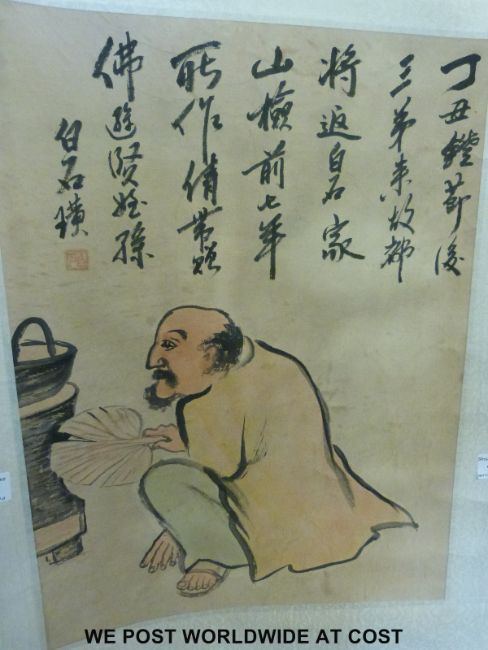 丁丑鐙節後
三弟來故都
將返白石家
山檢前七年
所作倩帶贈
佛遜賢姪孫
白石璜
WE POST WORLDWIDE AT COST